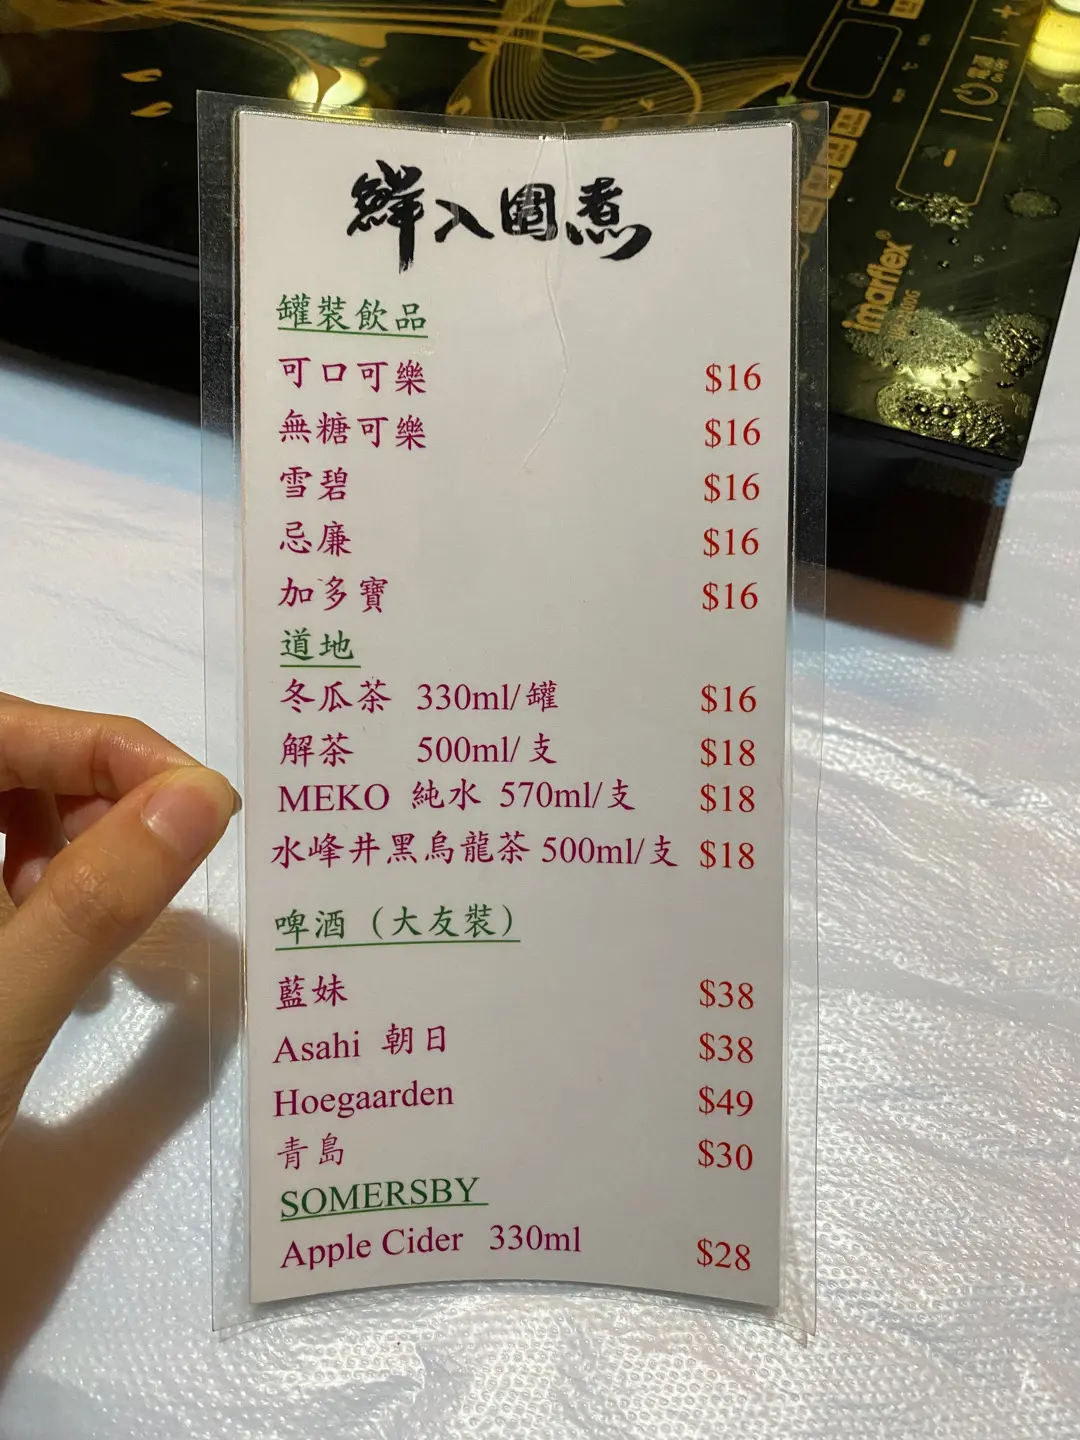 鮮入圍煮
罐裝飲品
可口可樂 $16
無糖可樂 $16
雪碧 $16
忌廉 $16
加多寶 $16
道地
冬瓜茶 330ml/罐 $16
解茶 500ml/支 $18
MEKO 純水 570ml/支 $18
水峰井黑烏龍茶 500ml/支 $18
啤酒（大友裝）
藍妹 $38
Asahi 朝日 $38
Hoegaarden $49
青島 $30
SOMERSBY
Apple Cider 330ml $28
imarflex®